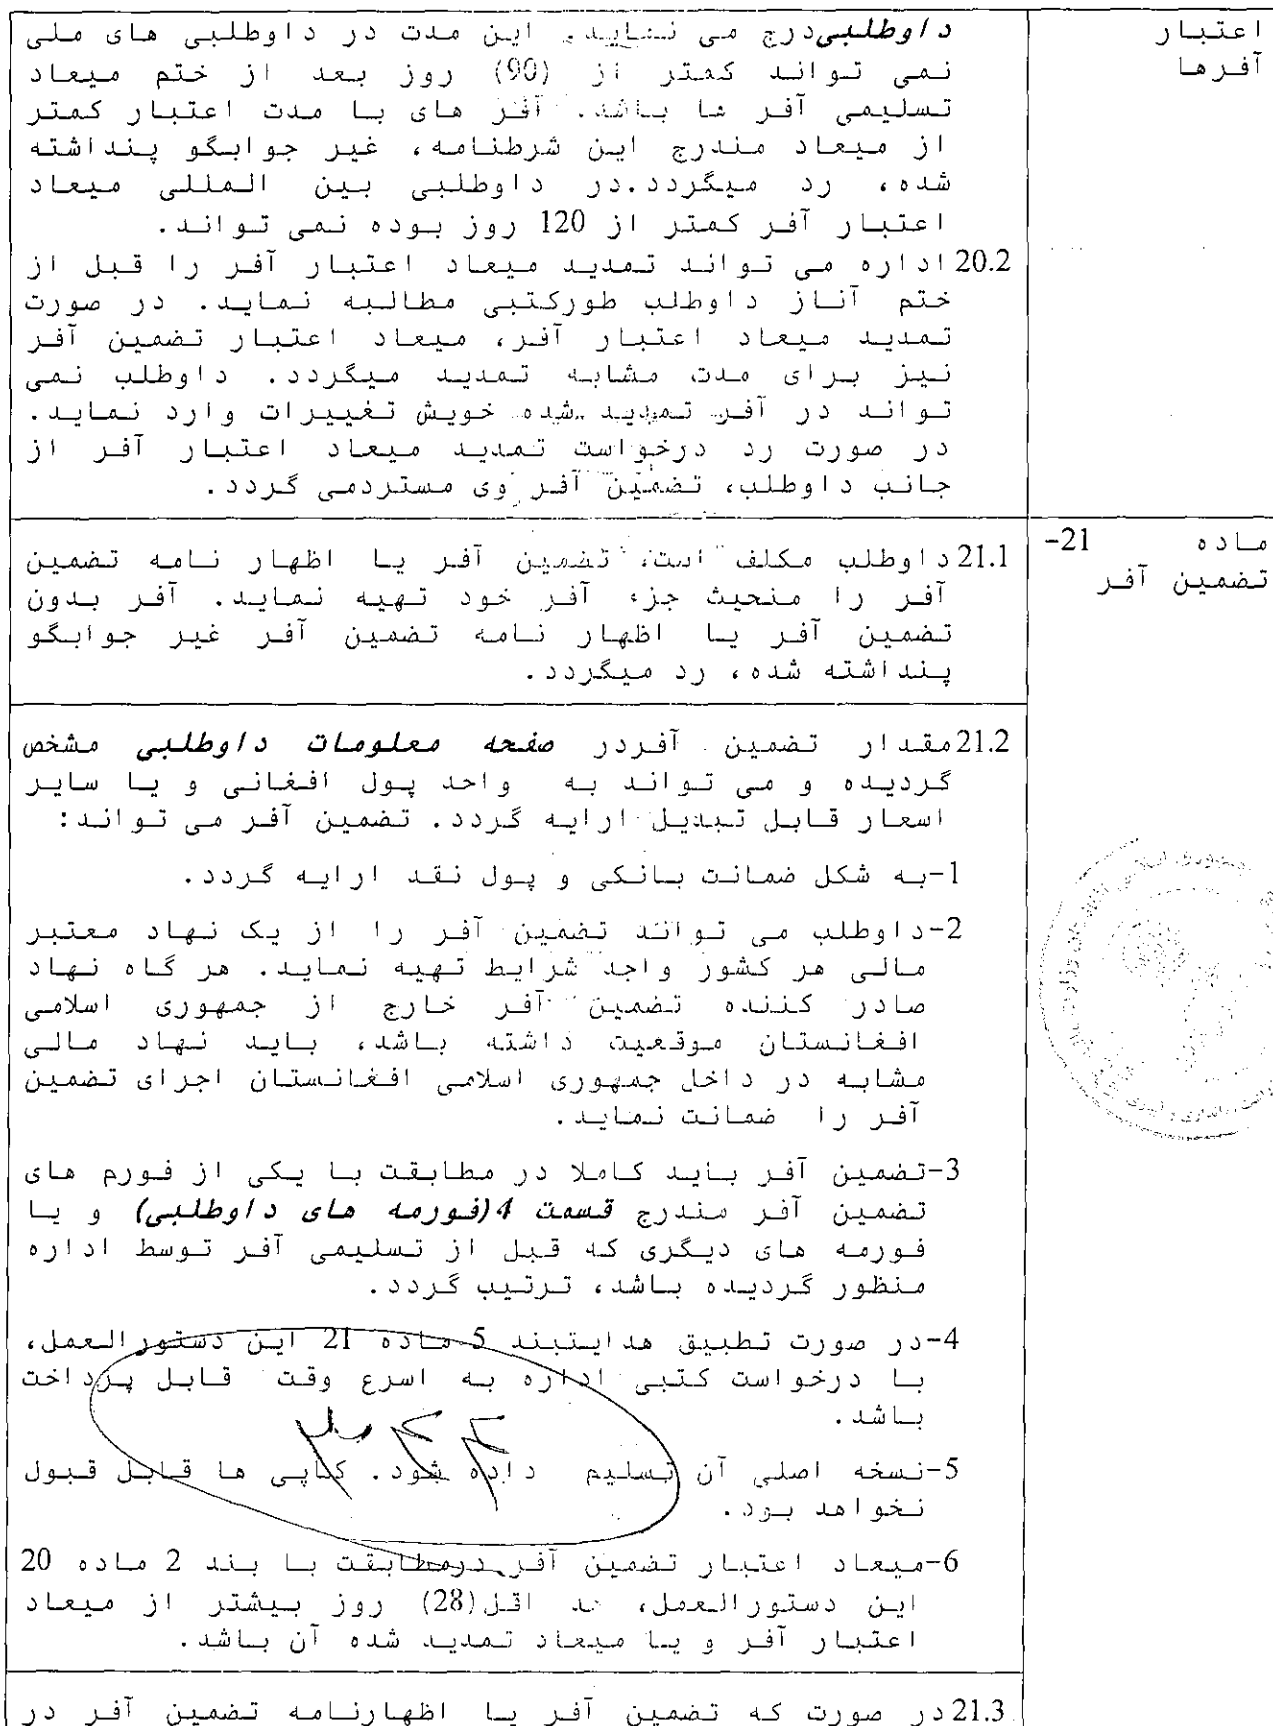 اعتبار
آفرها
داوطلبی درج می نماید. این مدت در داوطلبی های ملی
نمی تواند کمتر از (90) روز بعد از ختم میعاد
تسلیمی آفر ها باشد. آفر های با مدت اعتبار کمتر
از میعاد مندرج این شرطنامه، غیر جوابگو پنداشته
شده، رد میگردد.در داوطلبی بین المللی میعاد
اعتبار آفر کمتر از 120 روز بوده نمی تواند.
20.2 اداره می تواند تمدید میعاد اعتبار آفر را قبل از
ختم آناز داوطلب طورکتبی مطالبه نماید. در صورت
تمدید میعاد اعتبار آفر، میعاد اعتبار تضمین آفر
نیز برای مدت مشابه تمدید میگردد. داوطلب نمی
تواند در آفر تمدید شده خویش تغییرات وارد نماید.
در صورت رد درخواست تمدید میعاد اعتبار آفر از
جانب داوطلب، تضمین آفر وی مستردمی گردد.
ماده 21-
تضمین آفر
21.1 داوطلب مکلف است، تضمین آفر یا اظهار نامه تضمین
آفر را منحیث جزء آفر خود تهیه نماید. آفر بدون
تضمین آفر یا اظهار نامه تضمین آفر غیر جوابگو
پنداشته شده، رد میگردد.
21.2 مقدار تضمین آفردر صفحه معلومات داوطلبی مشخص
گردیده و می تواند به واحد پول افغانی و یا سایر
اسعار قابل تبدیل ارایه گردد. تضمین آفر می تواند:
1-به شکل ضمانت بانکی و پول نقد ارایه گردد.
2-داوطلب می تواند تضمین آفر را از یک نهاد معتبر
مالی هر کشور واجد شرایط تهیه نماید. هر گاه نهاد
صادر کننده تضمین آفر خارج از جمهوری اسلامی
افغانستان موقعیت داشته باشد، باید نهاد مالی
مشابه در داخل جمهوری اسلامی افغانستان اجرای تضمین
آفر را ضمانت نماید.
3-تضمین آفر باید کاملا در مطابقت با یکی از فورم های
تضمین آفر مندرج قسمت 4(فورمه های داوطلبی) و یا
فورمه های دیگری که قبل از تسلیمی آفر توسط اداره
منظور گردیده باشد، ترتیب گردد.
4-در صورت تطبیق هدایتبند 5 ماده 21 این دستورالعمل،
با درخواست کتبی اداره به اسرع وقت قابل پرداخت
باشد.
5-نسخه اصلی آن تسلیم داده شود. کاپی ها قابل قبول
نخواهد بود.
6-میعاد اعتبار تضمین آفر درمطابقت با بند 2 ماده 20
این دستورالعمل، حد اقل(28) روز بیشتر از میعاد
اعتبار آفر و یا میعاد تمدید شده آن باشد.
21.3 در صورت که تضمین آفر یا اظهارنامه تضمین آفر در